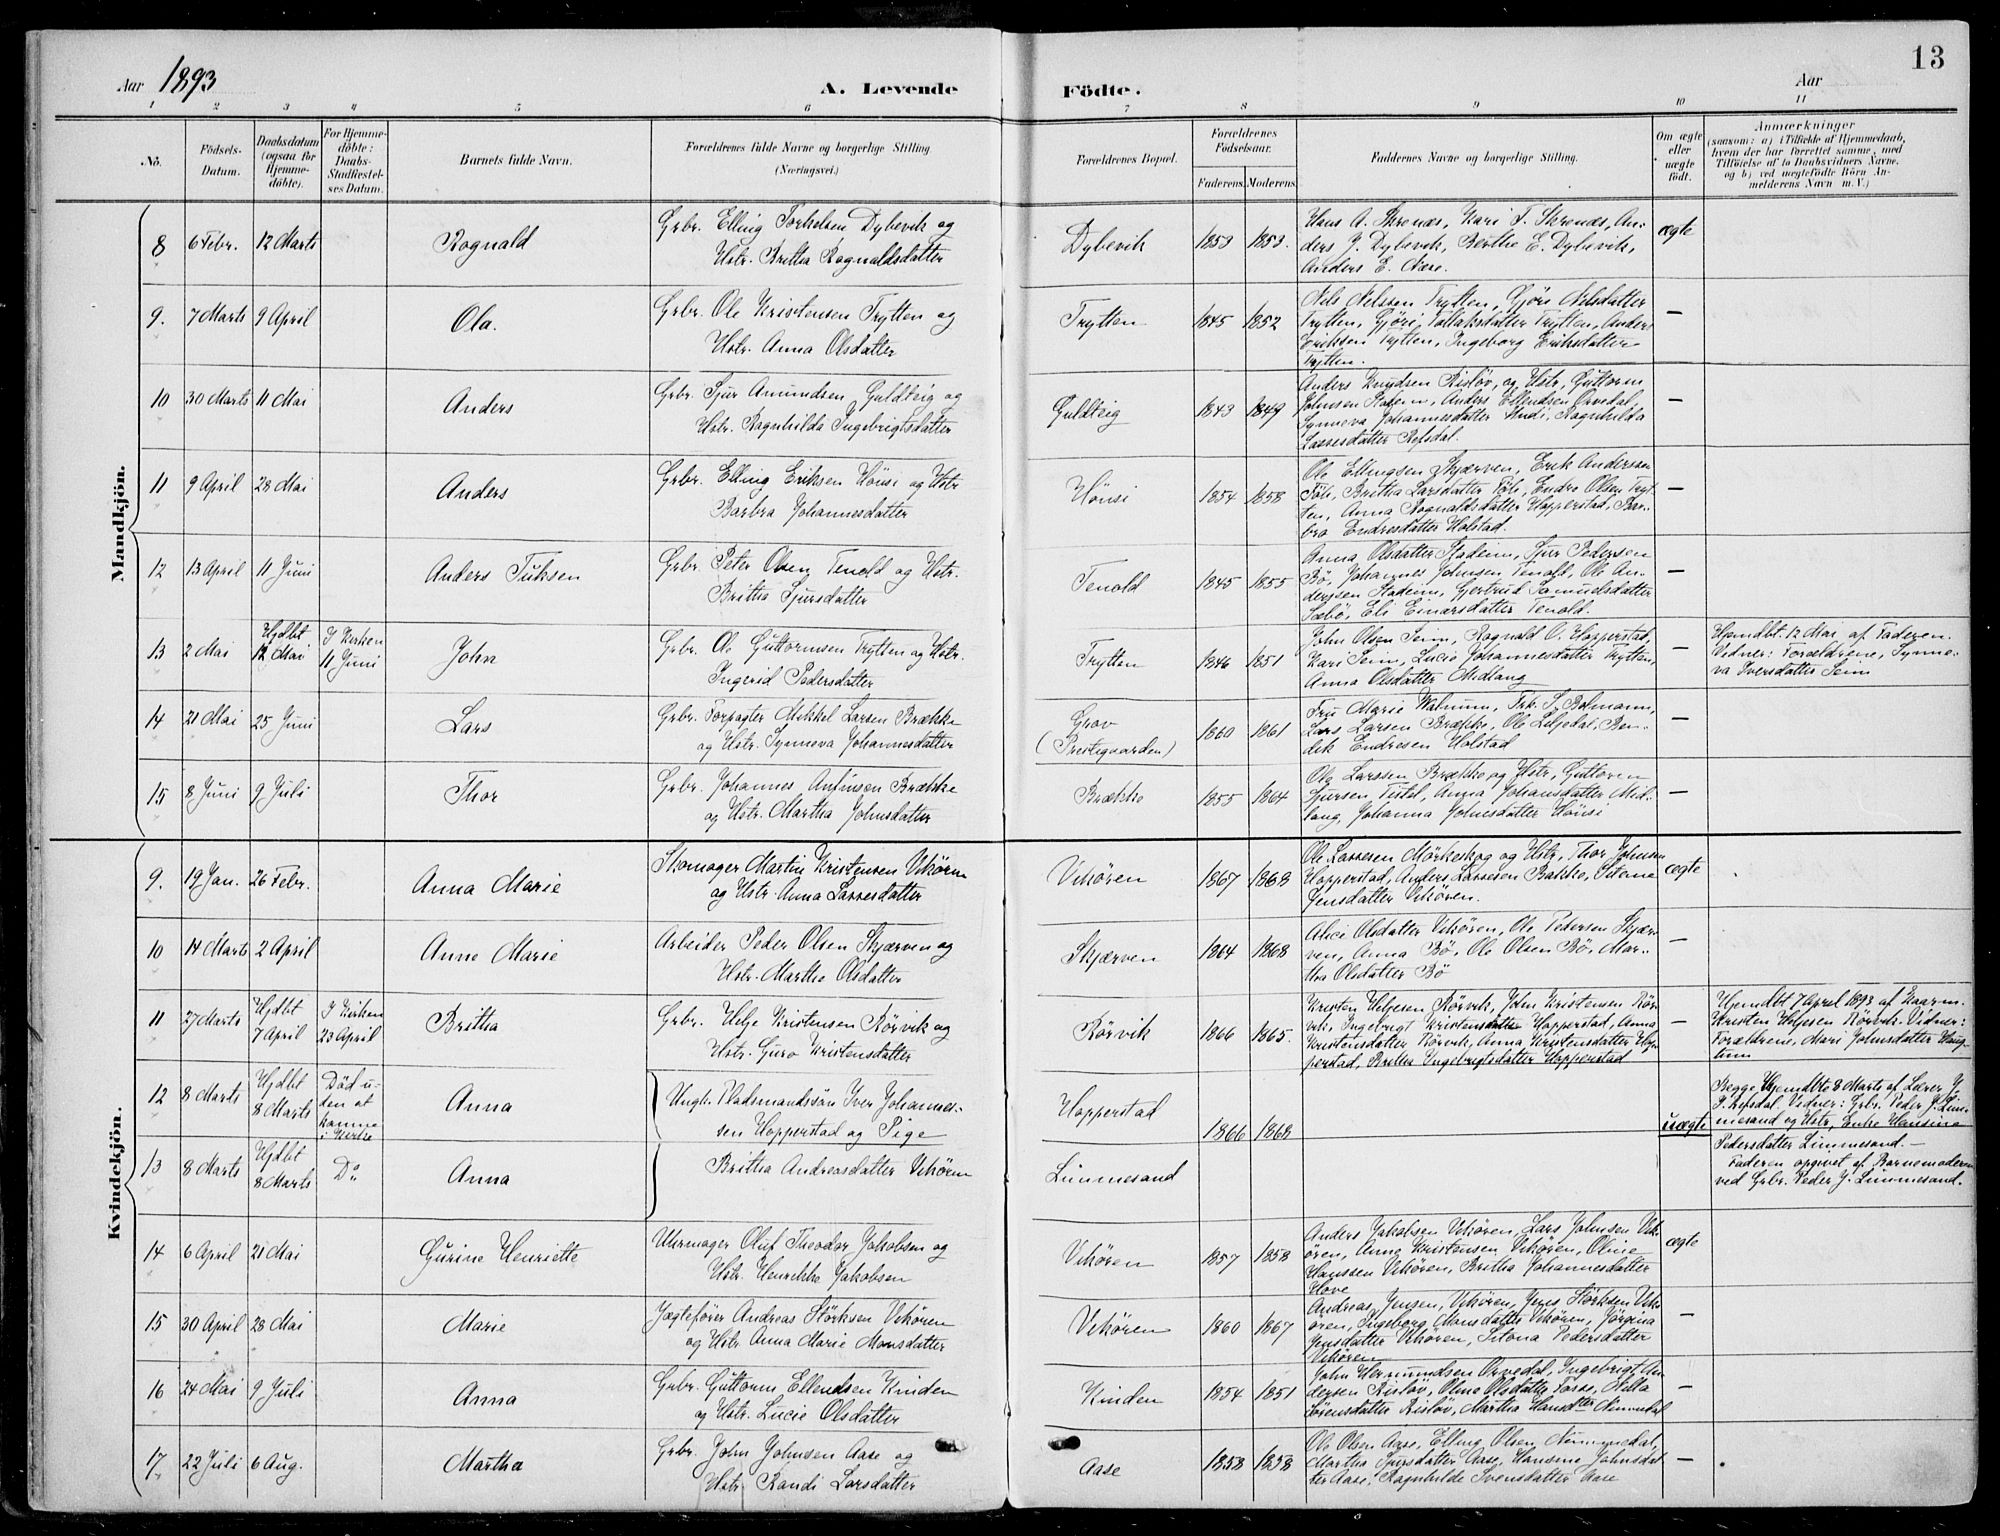 13
Aar 1893
A. Levende Födte.
Aar
1 2 3 4 5 6 7 8 9 10 11
No.
Födsels-Datum.
Daabsdatum (ogsaa for Hjemme-döbte).
For Hjemme-döbte: Daabs-Stadfæstel-ses Datum.
Barnets fulde Navn.
Forældrenes fulde Navne og borgerlige Stilling (Næringsvei.)
Forældrenes Bopæl.
Forældrenes Födselsaar.
Faderens. Moderens.
Faddernes Navne og borgerlige Stilling.
Om ægte eller uægte födt.
Anmærkninger
(saasom: a) i Tilfælde af Hjemmedaab,
hvem der har forrettet samme, med
Tilföielse af to Daabsvidners Navne,
og b) ved uægtefödte Börn An-
melderens Navn m. V.)
Mandkjön.
8 6 Febr. 12 Marts Rognald
Grbr. Elling Torkelsen Dybevik og
Hstr. Britha Rognaldsdatter
Dybevik 1853 1853.
Hans A. Skrenæs, Kari T. Skrenæs, An-
ders J. Dybevik, Berthe E. Dybevik,
Anders E. Nese.
ægte
9. 7 Marts 9 April Ola.
Grbr. Ole Kristensen Trytten og
Hstr. Anna Olsdatter
Trytten 1845 1852
Nels Nelssen Trytten, Gjöri Nelsdatter
Trytten, Gjöri Tollaksdatter Trytten, Anders
Eriksen Trytten, Ingeborg Eriksdatter
Trytten.
—
10 30 Marts 11 Mai Anders
Grbr. Sjur Amundsen Guldteig og
Hstr. Ragnhilda Ingebrigtsdatter
Guldteig 1843 1849
Anders Knudsen Risløv, og Hstr, Guttorm
Johnsen Stadeim, Anders Ellendsen Orvedal,
Synneva Johannesdatter Undi, Ragnhilda
Lassesdatter Refsdal.
—
11 9 April 28 Mai Anders
Grbr. Elling Eriksen Hönsi og Hstr
Barbra Johannesdatter
Hönsi 1854 1858
Ole Ellingsen Skjærven, Erik Anderssen
Föli, Britha Larsdatter Föli, Endre Olsen Tryt-
ten, Anna Rognaldsdatter Hopperstad, Bar-
bra Endresdatter Holstad.
—
12 13 April 11 Juni Anders Tuksen
Grbr. Peter Olsen Tenold og Hstr.
Britha Sjursdatter
Tenold 1845 1855
Anna Olsdatter Stadeim, Sjur Pedersen
Bö, Johannes Johnsen Tenold, Ole An-
derssen Stadeim, Gjertrud Samuelsdatter
Sæbö, Eli Einarsdatter Tenold.
—
13 2 Mai Hjdbt 12 Mai I Kirken 11 Juni John
Grbr. Ole Guttormsen Trytten og Hstr.
Ingerid Pedersdatter
Trytten 1846 1851
John Olsen Seim, Rognald O. Hopperstad,
Kari Seim, Lucie Johannesdatter Trytten,
Anna Olsdatter Midlang
—
Hjemdbt. 12 Mai, af Faderen.
Vidner: Forældrene, Synne-
va Iversdatter Seim
14 21 Mai 25 Juni Lars
Grbr. Forpagter Mikkel Larsen Brække
og Hstr. Synneva Johannesdatter
Grov
(Prestegaarden)
1860 1861
Fru Marie Walnum, Frk. S. Bolmann,
Lars Larsen Brække, Ole Liljedal, Ben-
dek Endresen Holstad
—
15 8 Juni 9 Juli Thor
Grbr. Johannes Anfinsen Brække
og Hstr. Martha Johnsdatter
Brække 1855 1864
Ole Larssen Brække og Hstr, Guttorm
Sjursen Tistel, Anna Johansdatter Mid-
lang, Johanna Johnsdatter Hönsi
—
Kvindekjön.
9. 19 Jan. 26 Febr. Anna Marie
Skomager Martin Kristensen Vikören
og Hstr. Anna Lassesdatter
Vikören 1867 1868
Ole Lassesen Mörkeskog og Hstr, Thor Johnsen
Hopperstad, Anders Lassesen Bakke, Sitona
Jensdatter Vikören.
ægte
10 14 Marts 2 April Anne Marie
Arbeider Peder Olsen Skjærven og
Hstr. Marthe Olsdatter
Skjærven 1864 1868
Alice Olsdatter Vikören, Ole Pedersen Skjær-
ven, Anna Bö, Ole Olsen Bö, Mar-
tha Olsdatter Bö
—
11 27 Marts Hjdbt 7 April I Kirken 23 April Britha
Grbr. Helje Kristensen Rörvik og
Hstr. Guro Kristensdatter
Rörvik 1866 1865.
Kristen Heljesen Rörvik, John Kristensen Rör-
vik, Ingebrigt Kristensdatter Hopperstad, Anna
Kristensdatter Rörvik, Anna Kristensdatter Hop-
perstad, Britha Ingebrigtsdatter Hopperstad
—
Hjemdbt 7 April 1893 af Kaarm.
Kristen Heljesen Rörvik. Vidner:
Forældrene, Mari Johnsdatter Haug-
tun
12 8 Marts Hjdbt 8 Marts Död u-den at komme i Kirke Anna
Ungk. Pladsmandssön Iver Johannes-
sen Hopperstad og Pige
Hopperstad 1866 1868
uægte
Begge Hjemdbte 8 Marts af Lærer J.
J. Refsdal. Vidner: Grbr. Peder J. Lim-
mesand og Hstr, Enke Hansina
Pedersdatter Limmesand.—
Faderen opgivet af Barnemoderen
ved Grbr. Peder J. Limmesand.
13 8 Marts Hjdbt 8 Marts Do Anna
Britha Andreasdatter Vikören
Limmesand
14 6 April 21 Mai Gurine Henriette
Uhrmager Oluf Theodor Jakobsen og
Hstr. Henrikke Jakobsen
Vikören 1857 1858
Anders Jakobsen Vikören, Lars Johnsen Vik-
ören, Anne Kristensen Vikören, Oline
Hanssen Vikören, Britha Johannesdatter
Hove
ægte
15 30 April 28 Mai Marie
Jægtefører Andreas Störksen Vikören
og Hstr. Anna Marie Monsdatter
Vikören 1860 1867
Andreas Jensen, Vikören, Jens Störksen Vik-
ören, Ingeborg Monsdatter Vikören, Jörgina
Jensdatter Vikören, Sitona Pedersdatter
Vikören
—
16 24 Mai 9 Juli Anna
Grbr. Guttorm Ellendsen Kinden
og Hstr. Lucie Olsdatter
Kinden 1854 1851
John Hermundsen Orvedal, Ingebrigt An-
dersen Risløv, Oline Olsdatter Tosse, Nilla
Sörensdatter Risløv, Martha Hansdtter Nummedal
—
17 22 Juli 6 Aug. Martha
Grbr. John Johnsen Aase og
Hstr. Randi Larsdatter
Aase 1858 1858
Ole Olsen Aase, Elling Olsen Nummedal,
Martha Sjursdatter Aase, Hansine Johnsdat-
ter Aase, Ragnhilde Svensdatter Aase
—